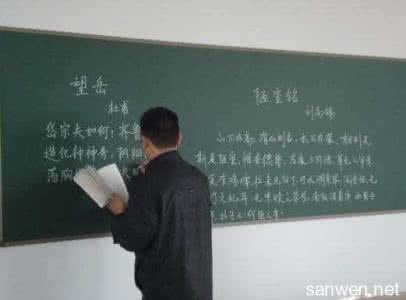 望岳
杜甫
岱宗夫如何：齐鲁
造化种神秀，阴阳
荡胸
陋室铭
刘禹锡
山不在高，有仙则名，水不在深，有龙则灵
斯是陋室，惟吾德馨，苔痕上阶绿，草色入帘青
笑有鸿儒，往来无白丁，可以调素琴，阅金经，无
之乱耳，无案牍之劳形，南阳诸葛庐，西蜀子
孔子云：何陋之有
sanwen.net